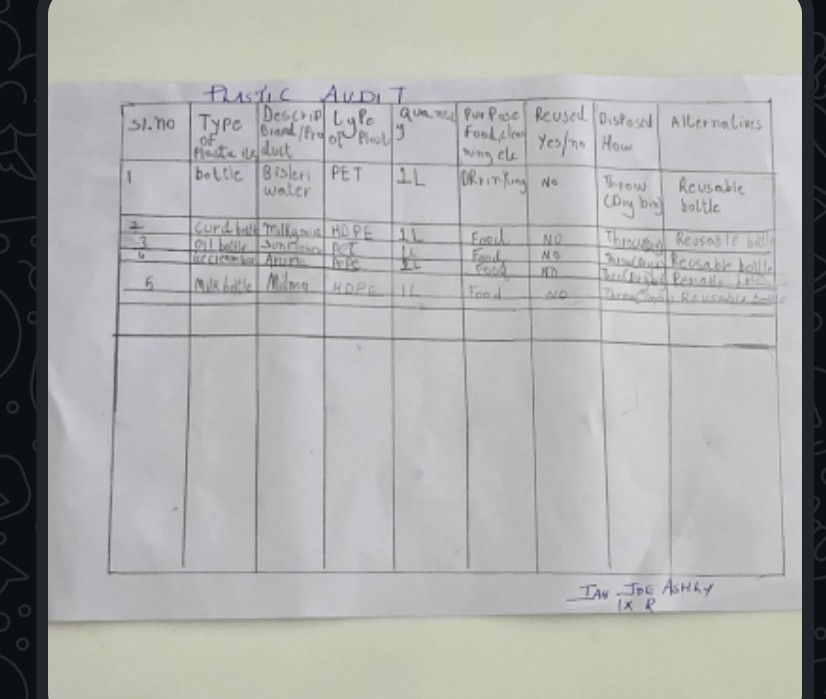 PLASTIC AUDIT
Sl.no Type of Plastic ite Descrip Brand/Pro duct type of Plast Quantit y PurPose Food,clea ning etc Reused Yes/no Disposed How Alternatives
1 bottle Bisleri water PET 1L DRrinking No Throw (Dry bin) Reusable bottle
2 Curd bottle Milkymist HDPE 1L Food NO Throw Reusable bottle
3 Oil bottle Sunflower PET 1L Food NO Throw Reusable bottle
4 Arun 1L Food NO
5 Milk bottle Milma HDPE 1L Food NO Throw Reusable bottle
IAN JOE ASHLY
IX R